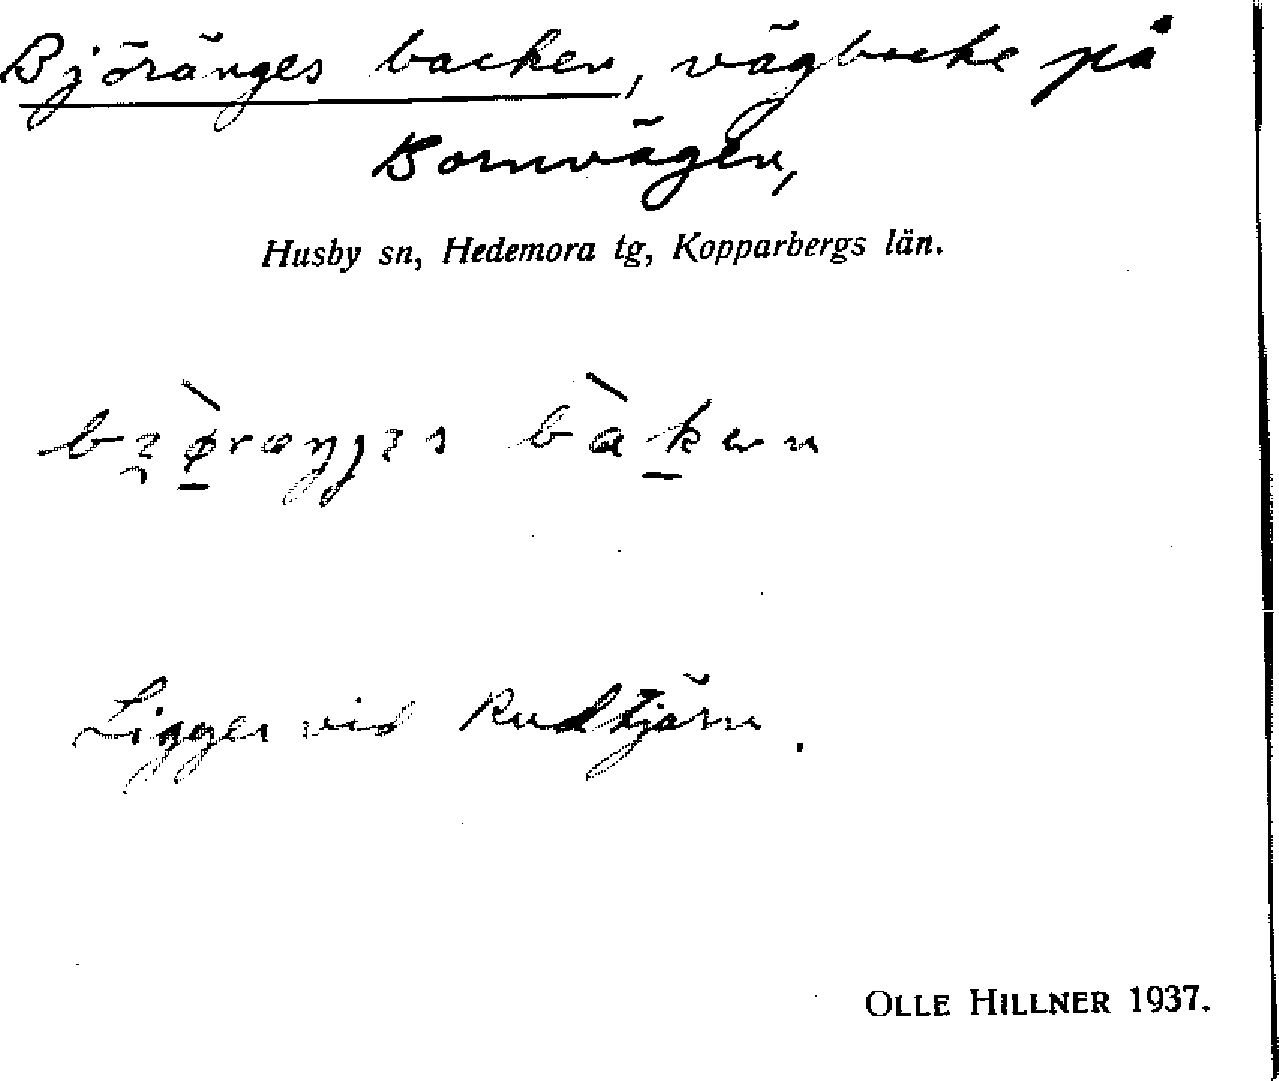 Björänges backen, vägbacke på
Bornvägen,
Husby sn, Hedemora tg, Kopparbergs län.
Ligger vid Rudtjärn.
OLLE HILLNER 1937.